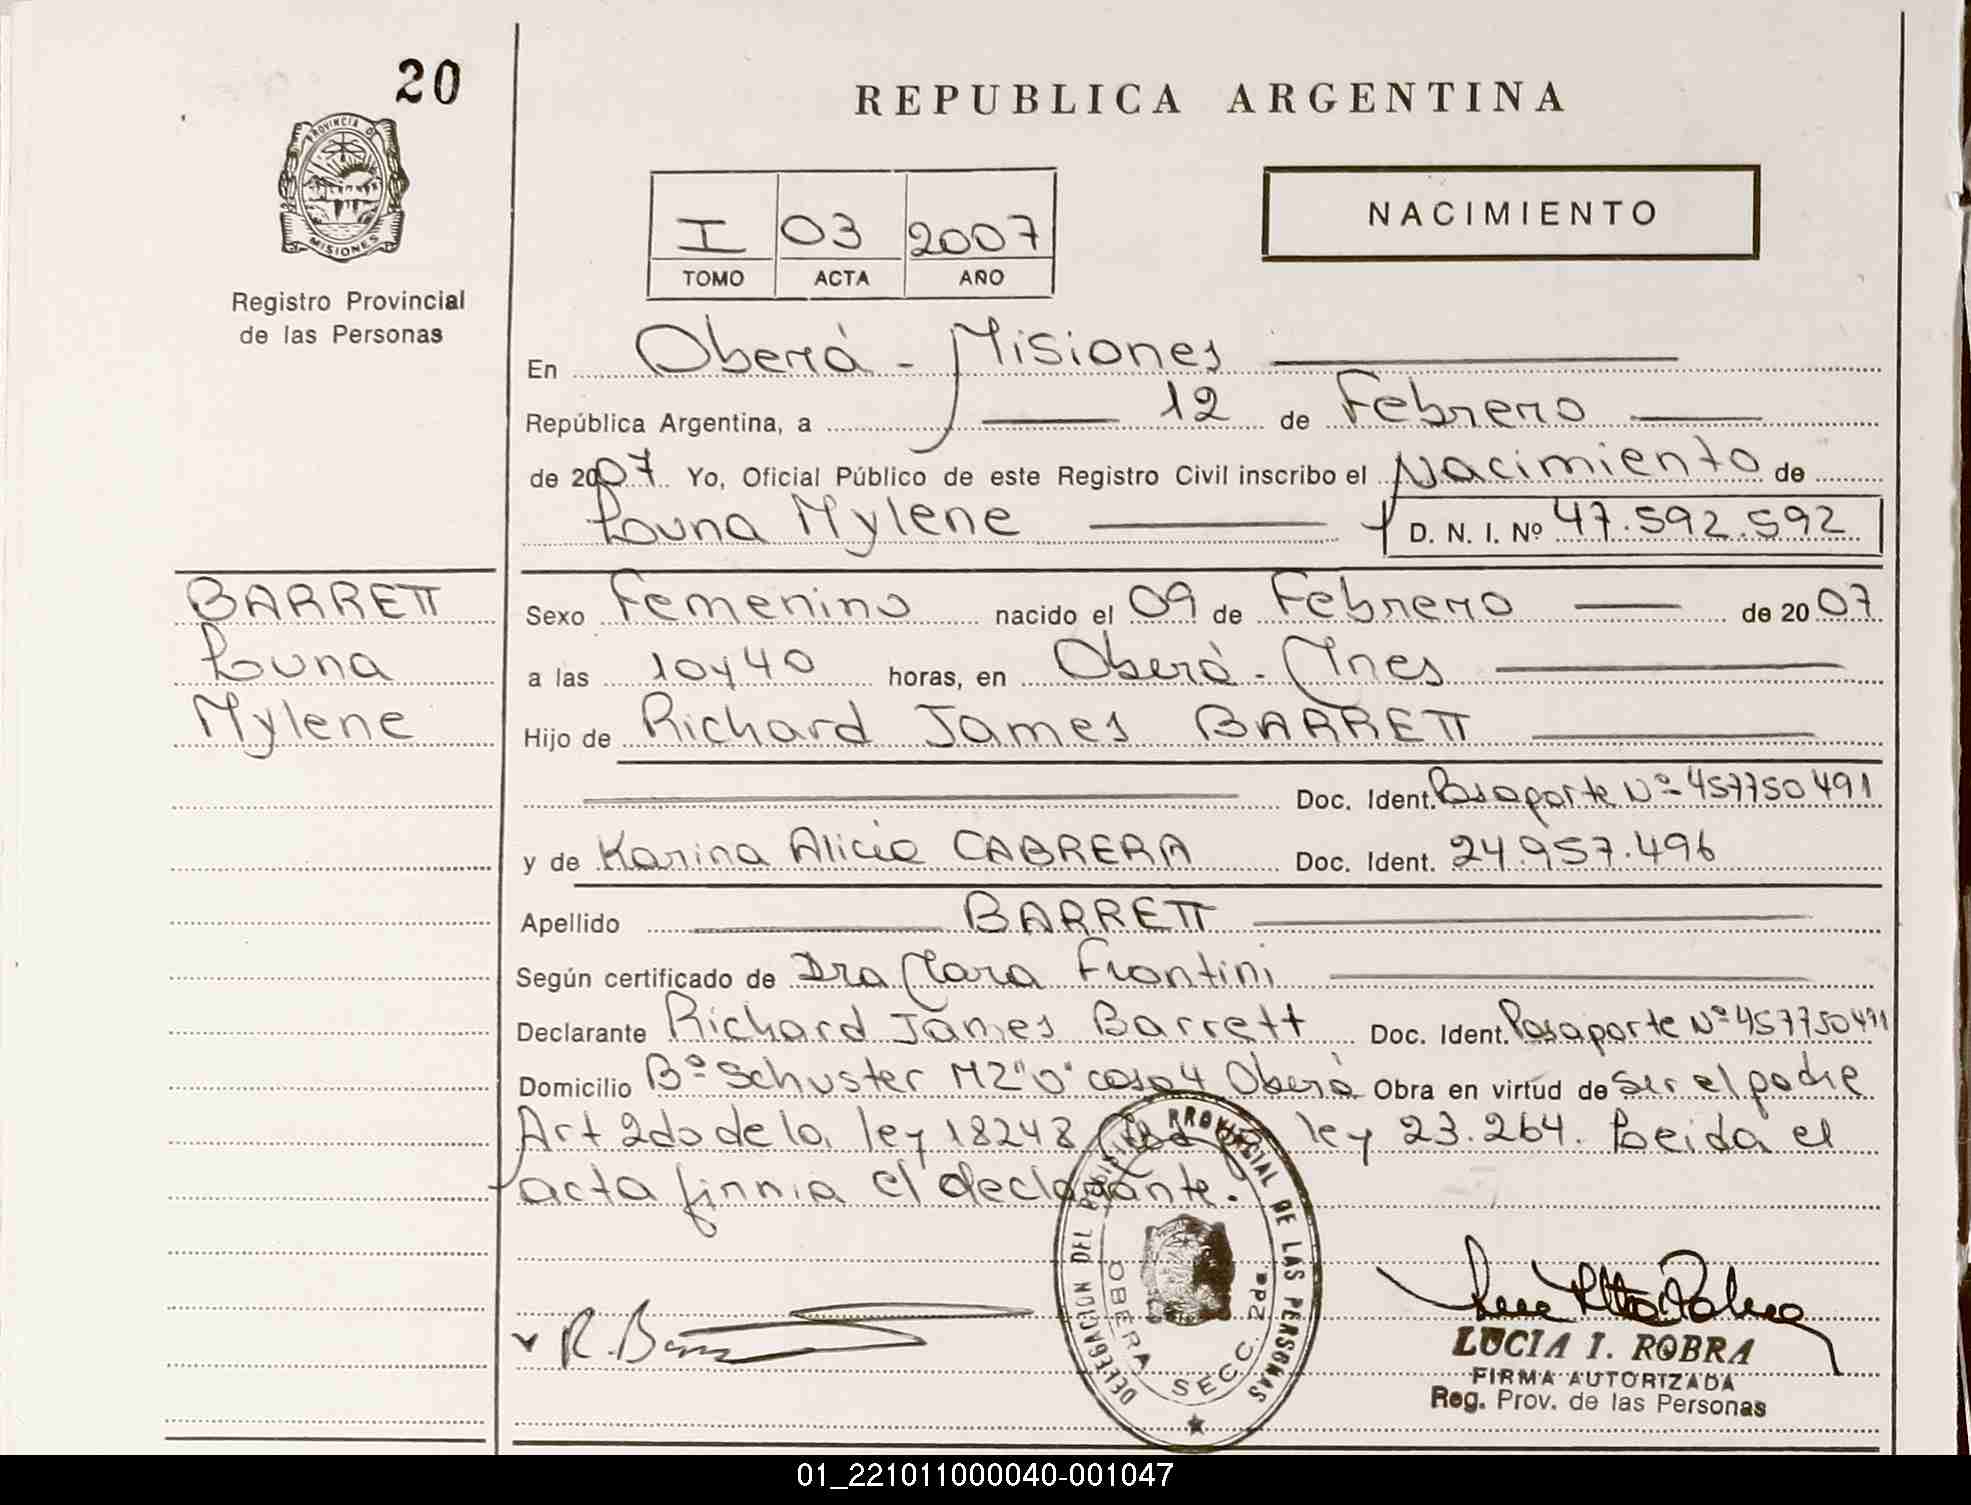 20
REPUBLICA ARGENTINA
PROVINCIA D
MISIONES
Registro Provincial
de las Personas
I 03 2007
TOMO ACTA AÑO
NACIMIENTO
En Oberá - Misiones
República Argentina, a 12 de Febrero
de 2007 Yo, Oficial Público de este Registro Civil inscribo el Nacimiento de
Louna Mylene D. N. I. Nº 47.592.592
BARRETT
Louna
Mylene
Sexo Femenino nacido el 09 de Febrero de 2007
a las 10y40 horas, en Oberá - Mnes
Hijo de Richard James BARRETT
Doc. Ident. Pasaporte Nº 457750491
y de Karina Alicia CABRERA Doc. Ident. 24.957.496
Apellido BARRETT
Según certificado de Dra Clara Frontini
Declarante Richard James Barrett Doc. Ident. Pasaporte Nº 457750491
Domicilio Bº Schuster MZ "O" casa 4 Oberá Obra en virtud de ser el padre
Art 2do de la ley 18248 ley 23.264. Leida el
acta firma el declarante.
DELEGACION DEL REGISTRO PROVINCIAL DE LAS PERSONAS
OBERA SECC. 2da.
R. Barrett
LUCIA I. ROBRA
FIRMA AUTORIZADA
Reg. Prov. de las Personas
01_221011000040-001047